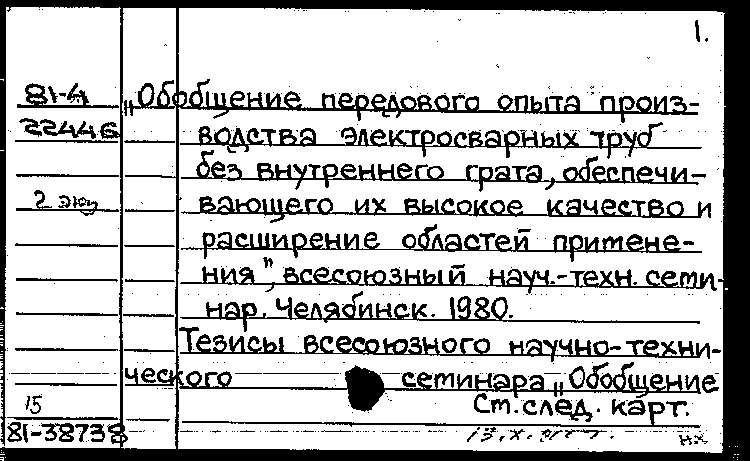 1.
81-4 „Обобщение передового опыта произ-
22446 водства электросварных труб
без внутреннего грата, обеспечи-
2 экз вающего их высокое качество и
расширение областей примене-
ния", всесоюзный науч.-техн. семи-
нар. Челябинск. 1980.
Тезисы всесоюзного научно-техни-
ческого семинара „Обобщение
15 См. след. карт.
81-38738